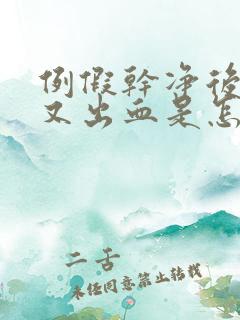 例假幹净後
又出血是怎
二舌
未经同意禁止转载